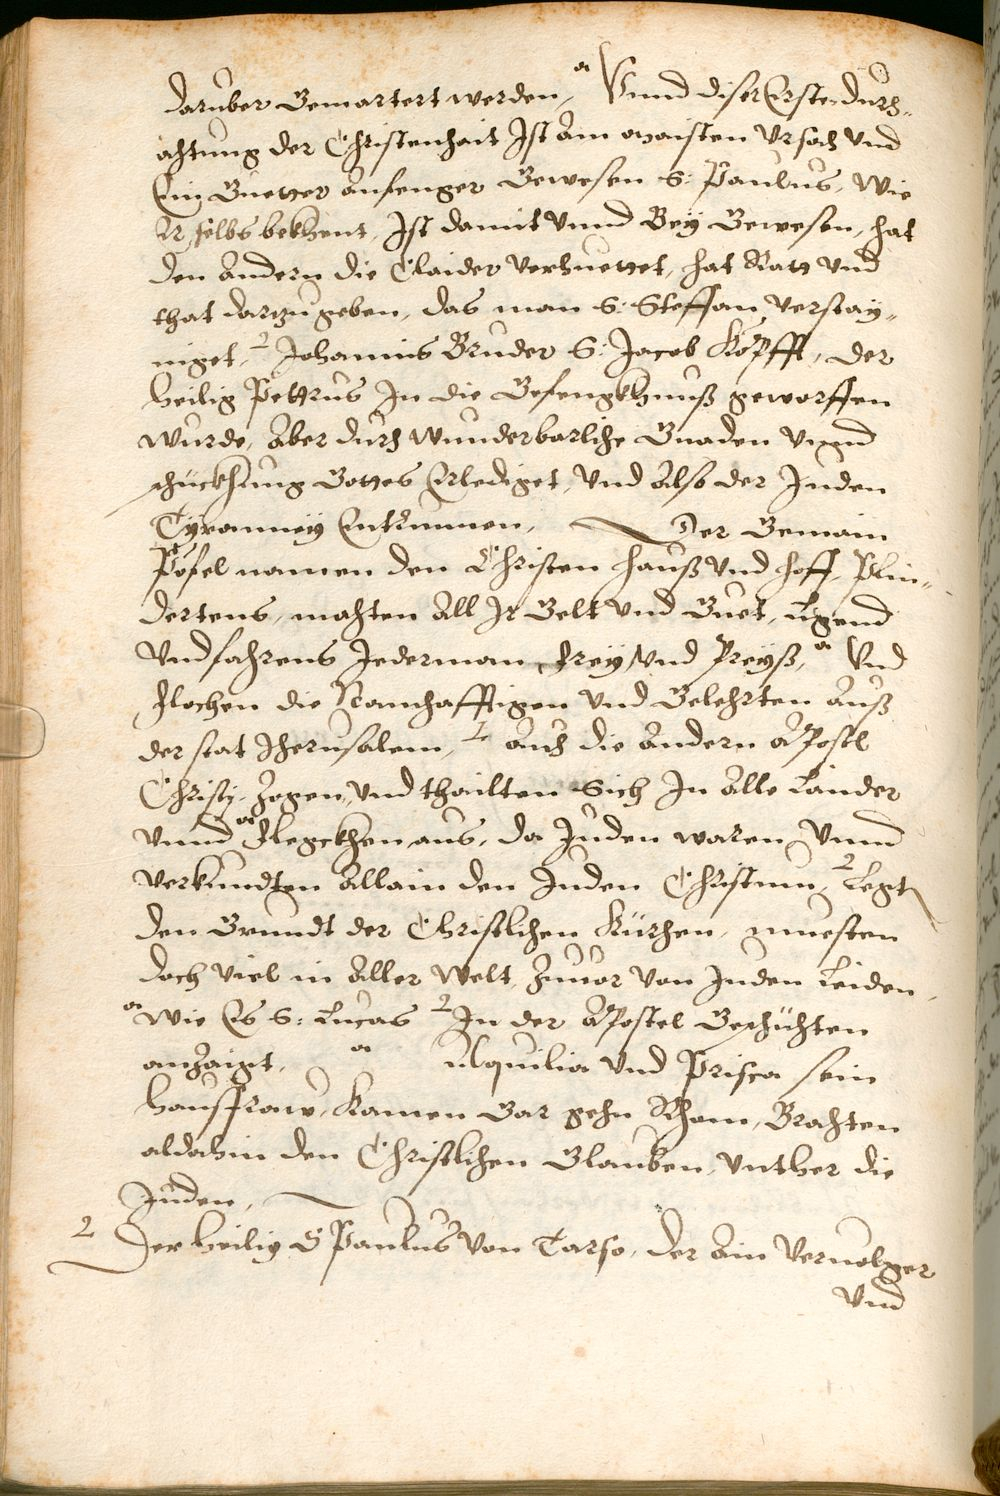 daruber Gemartert werden, a Vnnd diser Erste durch-
ächtung der Christenhait Ist Am maisten Vrsach vnd
Ein Guetter Anfenger Gewesen S: Paulus, Wie
Er selbs bekhent, Ist damit vnnd Bey Gewesen, hat
den Andern die Claider verhuettet, hat Rath vnd
that darzu geben, das man S: Steffan verstay-
niget, 2 Johannis Bruder S: Jacob Köpfft, der
heilig Pettrus In die Gefengkhnuß geworffen
wurde, Aber durch wunderbarliche Gnaden vnnd
schückhung Gottes Erlediget, vnd Also der Juden
Tyranney Entrunnen, Der Gemain
Pöfel namen den Christen hauß vnd hoff, Plin-
dertens, machten All Ir Gelt vnd Guet, Ligend
vnd fahrens Jederman frey vnd Preyß, a Vnd
flochen die Namhafftigen vnd Gelehrten Auß
der stat Jherusalem, 2 Auch die Andern APostl
Christj, Zogen vnd thailten Sich In Alle Länder
vnnd a flegckhen aus, da Juden waren vnnd
verkundten Allain den Juden Christum, 2 Legt
den Grundt der Christlichen Kürchen, muesten
doch viel in Aller Welt, Zuuor von Juden Leiden,
a Wie Es S: Lucas 2 In der APostel Geschichten
anZaigt, a Aquilia vnd Prisca sein
haussfraw, Kamen Gar gehn Rhom, Brachten
aldahin den Christlichen Glauben, vnther die
Juden,
2 Der heilig S Paulus von Tarso, der Ain Veruolger
vnd